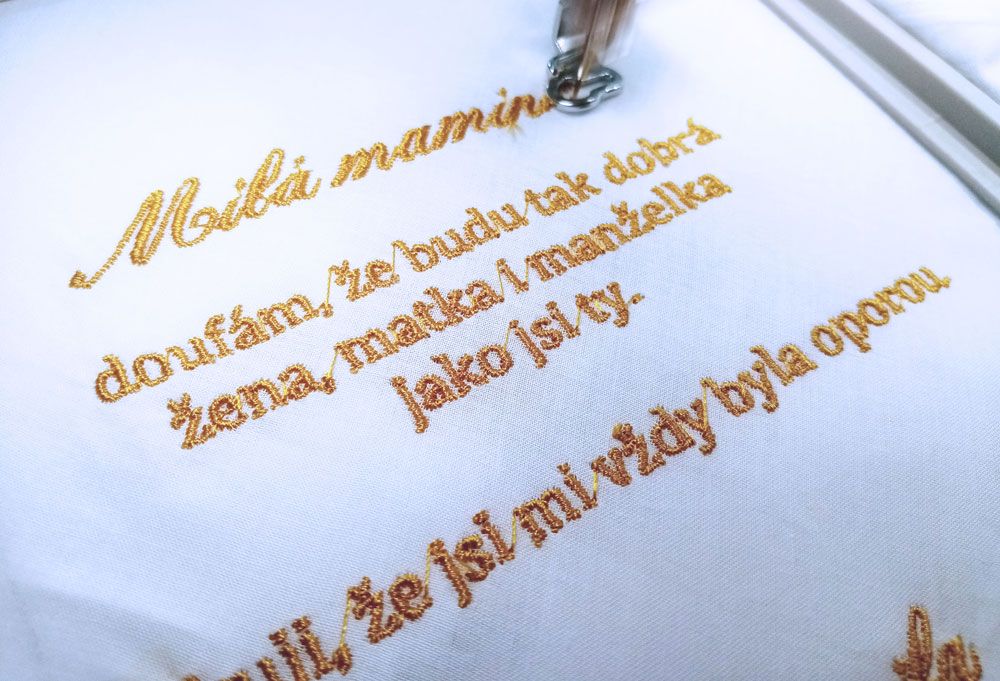 Milá
doufám, že budu tak dobrá
žena, matka i manželka
jako jsi ty.
že jsi mi vždy byla oporou,